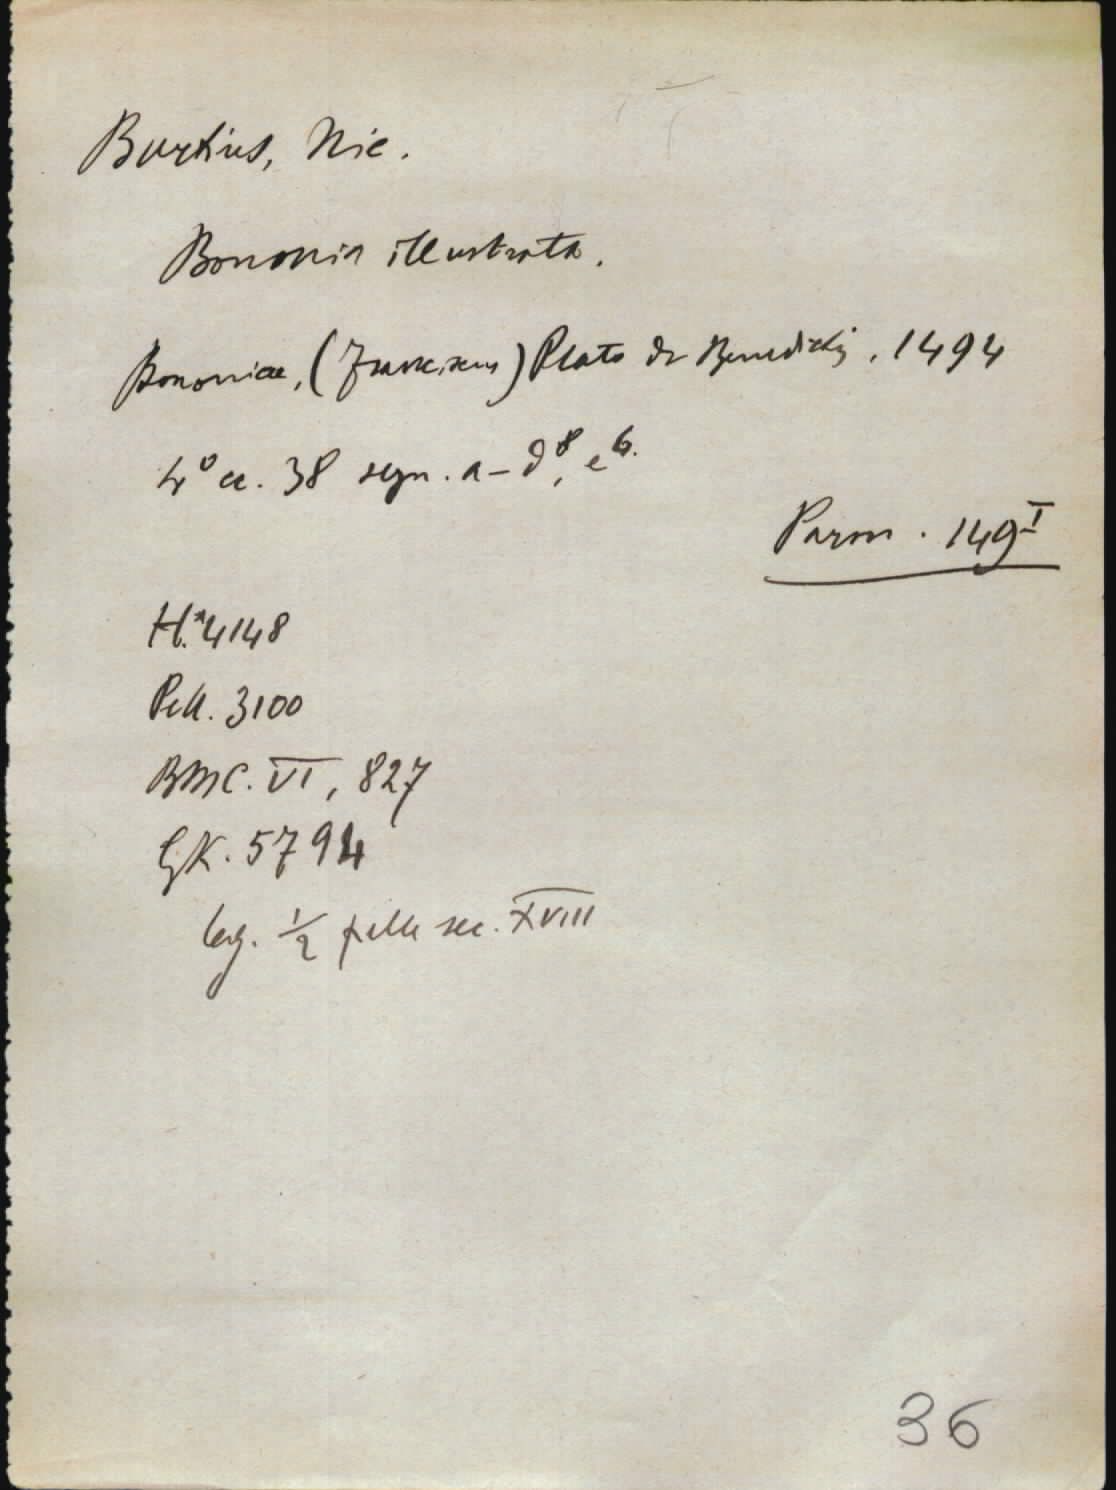 Burtius, Nic.
Bononia illustrata.
Bononiae, (Franciscus) Plato de Benedictis, 1494
4° cc. 38 segn. a-d⁸, e⁶.
Parm. 149ᴵ
H.*4148
Pell. 3100
BMC. VI, 827
GK. 5794
leg. 1/2 pelle sec. XVIII
36